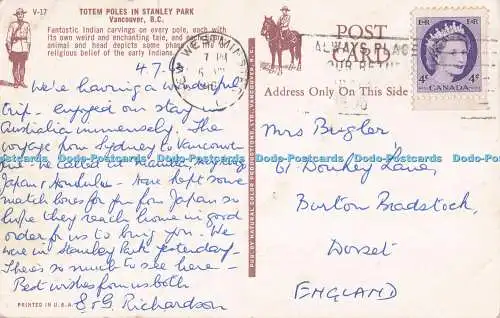 V-17 TOTEM POLES IN STANLEY PARK
Vancouver, B.C.
Fantastic Indian carvings on every pole, each with
its own weird and enchanting tale, and each
animal and head depicts some phase of life or
religious belief of the early Indians.
4.7.
We're having a wonderful
trip - enjoyed our stay in
Australia immensely. The
voyage from Sydney to Vancouver
fine - we called at Manila, Hong Kong
Japan & Honolulu - have kept some
match boxes for you from Japan so
hope they reach home in good
order for us to bring you. We
were in Stanley Park yesterday -
There's so much to see here -
Best wishes from us both
E & G Richardson
PRINTED IN U.S.A.
PUB. BY NATURAL COLOR PRODUCTIONS LTD., VANCOUVER
NEW WESTMINSTER
7 PM
ALWAYS PLACE
OUR RETURN
POST CARD
Address Only On This Side
EIIR EIIR
4¢ 4¢
CANADA
Mrs Bugler
61 Donkey Lane,
Burton Bradstock,
Dorset
ENGLAND
Dodo-Postcards Dodo-Postcards Dodo-Postcards Dodo-Postcards